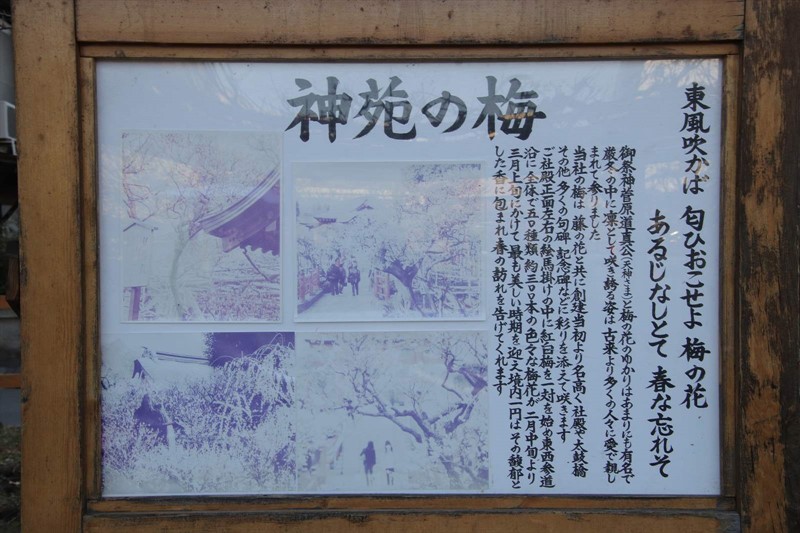 神苑の梅
東風吹かば 匂ひおこせよ 梅の花
あるじなしとて 春な忘れそ
御祭神菅原道真公(天神さま)と梅の花のゆかりはあまりにも有名で
厳冬の中に凛として咲き誇る姿は 古来より多くの人々に愛で親し
まれて参りました
当社の梅は 藤の花と共に創建当初より名高く社殿や太鼓橋
その他 多くの句碑 記念碑などに彩りを添えて咲きます
ご社殿正面左右の絵馬掛けの中に紅白梅を一対を始め東西参道
沿に 全体で五〇種類 約三〇〇本の色々な梅花が 二月中旬より
三月上旬にかけて 最も美しい時期を迎え境内一円はその馥郁と
した香に包まれ 春の訪れを告げてくれます